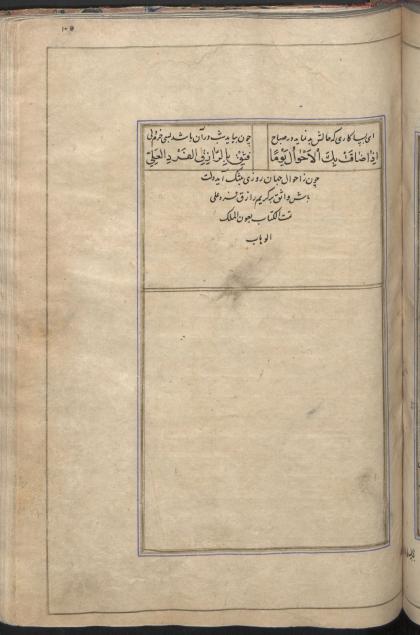 ای بسا کاری که حالش بد نماید در صباح چون بیاید شب در آن باشد بسی خرم دلی
اِذَا ضَاقَتْ بِكَ الْاَحْوَالُ يَوْمًا فَثِقْ بِالرَّازِقِ الْفَرْدِ الْعَلِيّ
چون ز احوال جهان روزی بتنگ آید دلت
باش واثق بر کریم رازق فرد علی
تمت الکتاب بعون الملک
الوهاب